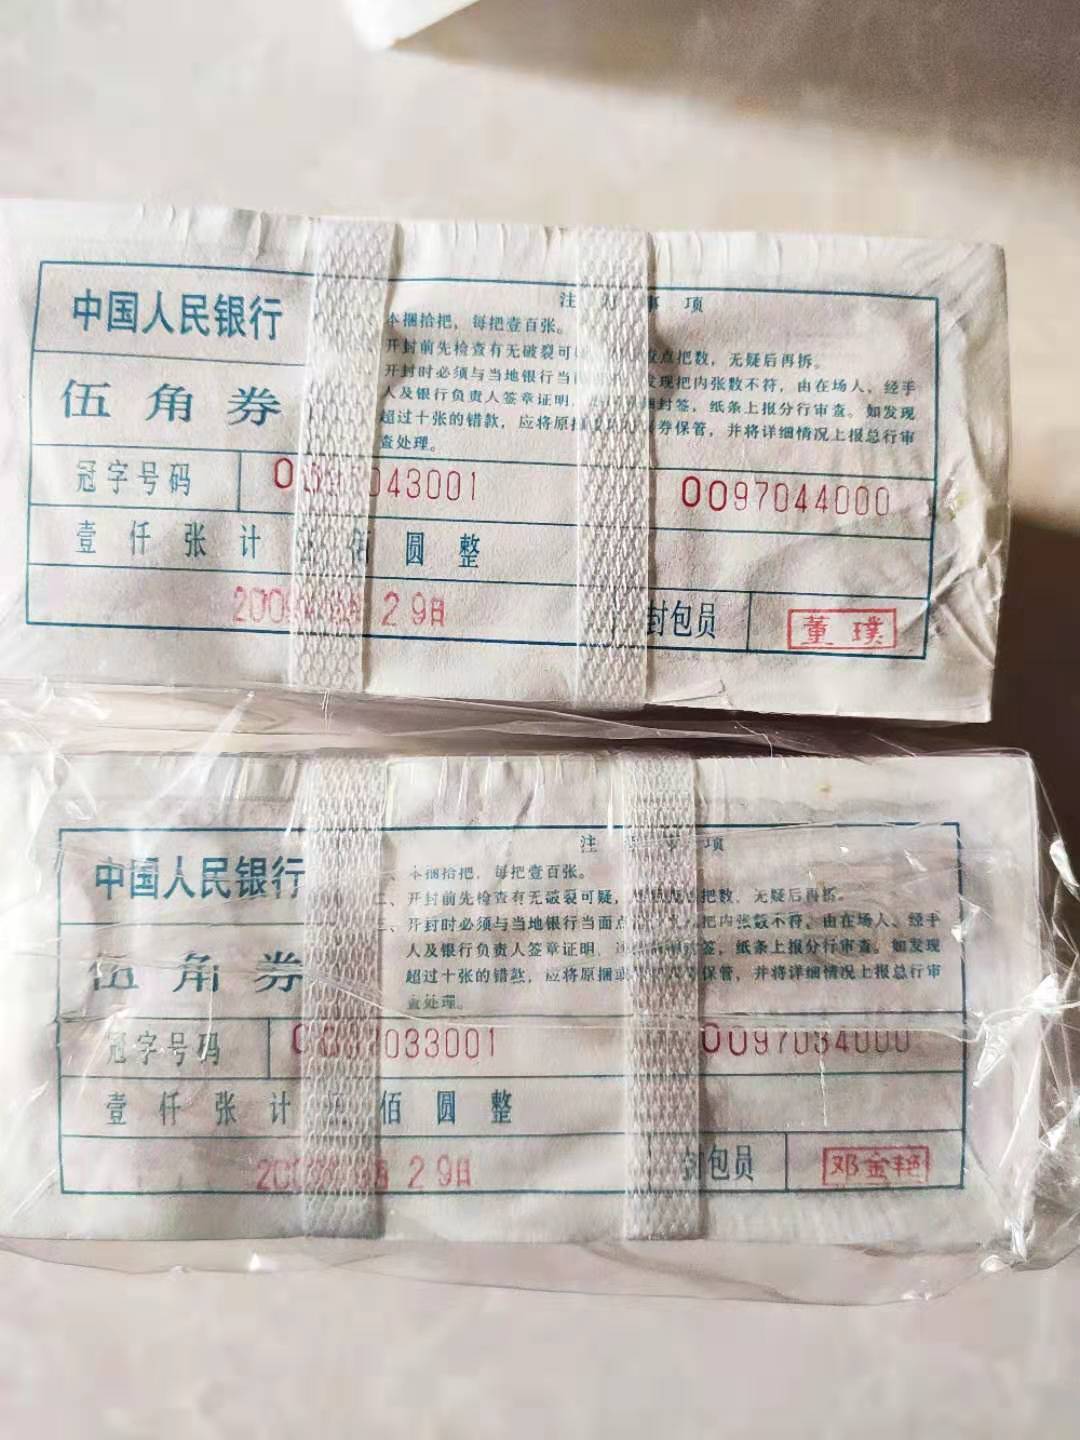 中国人民银行
伍角券
注 事 项
本捆拾把，每把壹百张。
开封前先检查有无破裂可 点把数，无疑后再拆。
开封时必须与当地银行当 发现把内张数不符，由在场人、经手
人及银行负责人签章证明， 封签，纸条上报分行审查。如发现
超过十张的错款，应将原 券保管，并将详细情况上报总行审
查处理。
冠字号码 043001 0097044000
壹仟张计 佰圆整
29日 封包员 董璞
中国人民银行
伍角券
注 项
、本捆拾把，每把壹百张。
二、开封前先检查有无破裂可疑， 把数，无疑后再拆。
三、开封时必须与当地银行当面点 把内张数不符，由在场人、经手
人及银行负责人签章证明， 签，纸条上报分行审查。如发现
超过十张的错款，应将原捆或 保管，并将详细情况上报总行审
查处理。
冠字号码 033001 0097034000
壹仟张计 佰圆整
29日 封包员 邓金艳